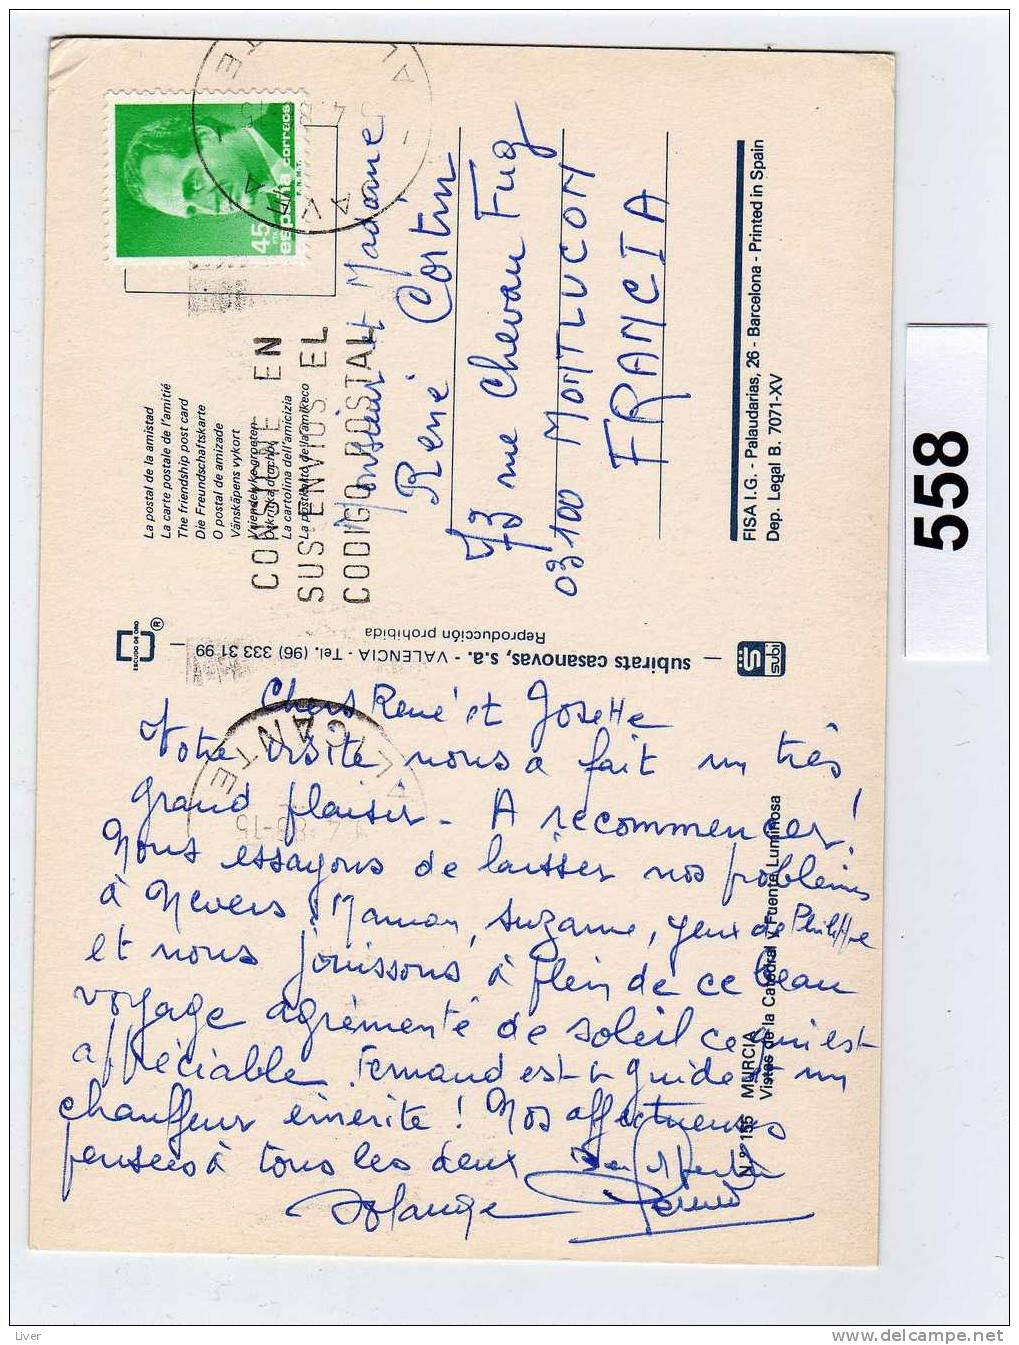 Chers René et Josette
Votre visite nous a fait un très
grand plaisir - A recommencer!
Nous essayons de laisser nos problèmes
à Nevers! Maman, Suzanne, yeux de Philippe
et nous jouissons à plein de ce beau
voyage agrémenté de soleil ce qui est
appréciable. Fernand est un guide et un
chauffeur émérite! Nos affectueuses
pensées à tous les deux
Solange
Monsieur et Madame
René Cortin
73 rue Chevan Fug
03100 MONTLUCON
FRANCIA
45 PTA
españa correos
F.N.M.T.
ALICANTE
CONSIGNE EN
SUS ENVIOS EL
CODIGO POSTAL
La postal de la amistad
La carte postale de l'amitié
The friendship post card
Die Freundschaftskarte
O postal de amizade
Vänskäpens vykort
Vriendelyke groeten
La cartolina dell'amicizia
ESCUDO DE ORO
®
subirats casanovas, s.a. - VALENCIA - Tel. (96) 333 31 99
Reproducción prohibida
subi
FISA I.G. - Palaudarias, 26 - Barcelona - Printed in Spain
Dep. Legal B. 7071-XV
N.º 155 MURCIA
Vistas de la Catedral y Fuente Luminosa
558
Liver
www.delcampe.net